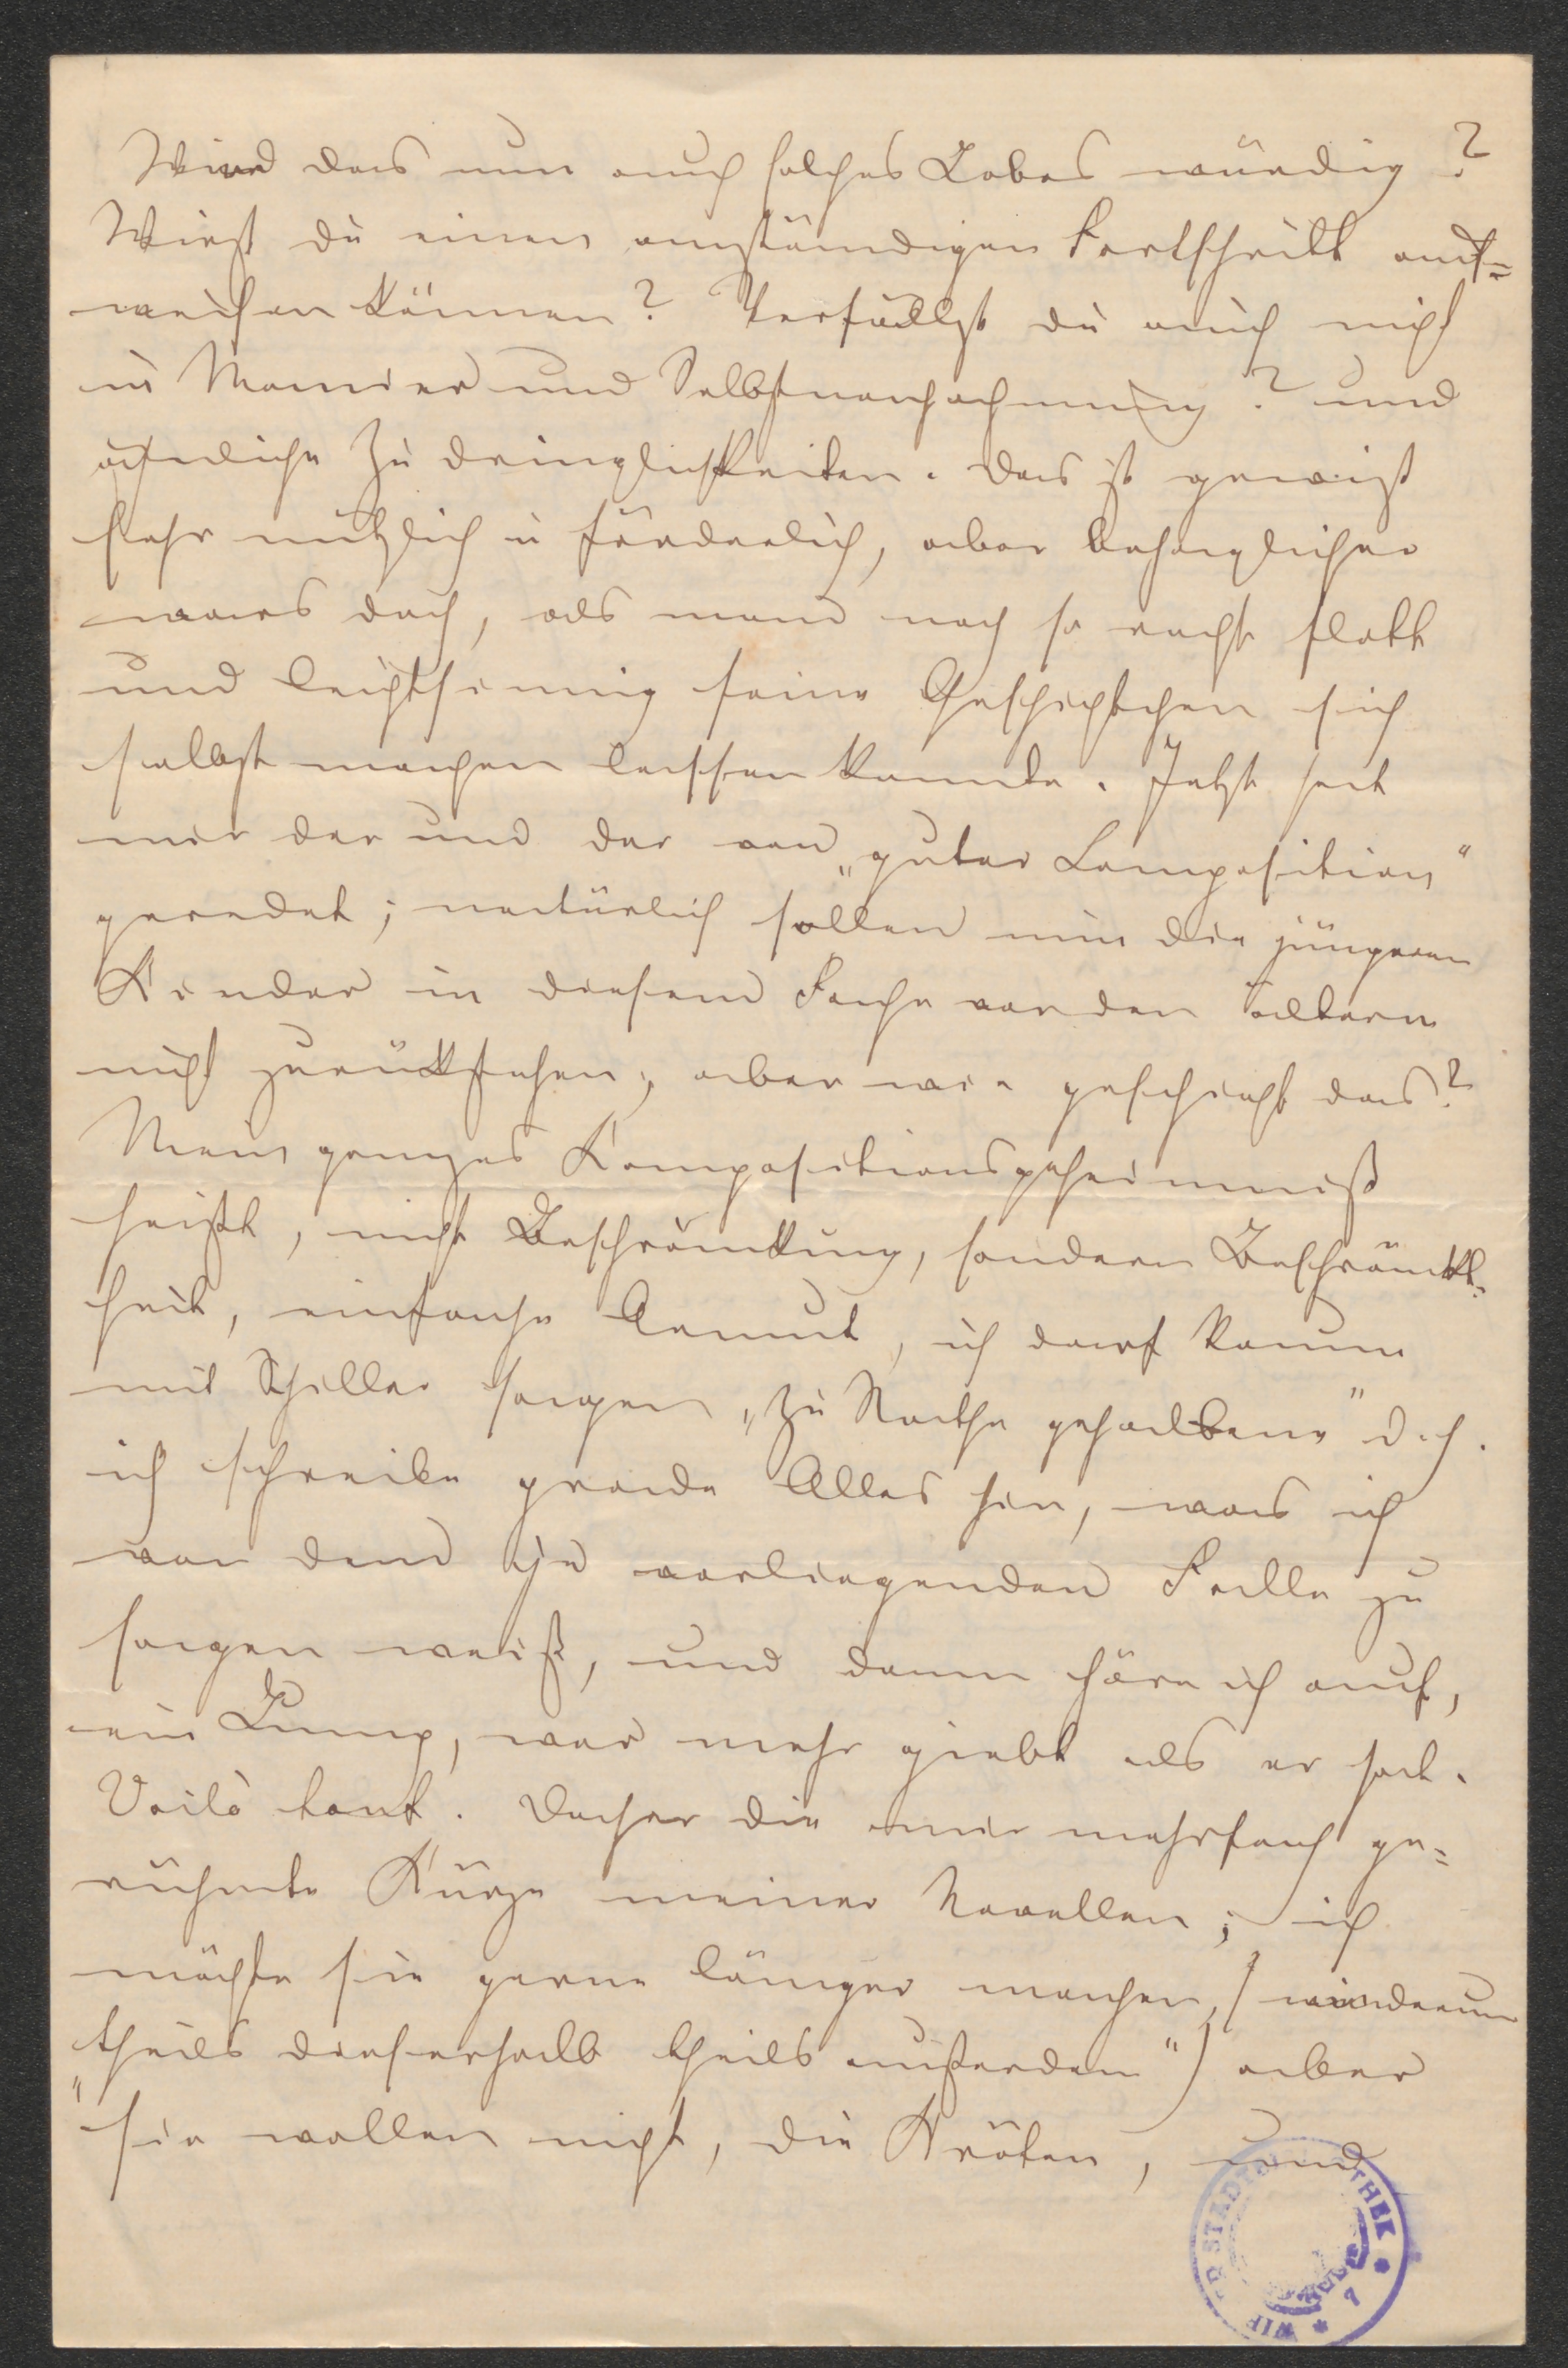 Wird das nun auch solches Lobes würdig?
Wirst du einen anständigen Fortschritt auf=
weisen können? Verfällst du auch nicht
in Manier und Selbstnachahmung? und
ähnliche Zudringlichkeiten. Das ist gewiß
sehr nützlich u förderlich, aber behaglicher
wars doch, als man noch so recht flott
und leichtsinnig seine Geschichtchen sich
selbst machen lassen konnte. Jetzt hat
mir der und der von „guter Composition“
geredet; natürlich sollen nun die jüngeren
Kinder in diesem Fache vor den ältern
nicht zurückstehen; aber wie geschieht das?
Mein ganzes Kompositionsgeheimniß
heißt, nicht Beschränkung, sondern Beschränkt=
heit, einfache Armut, ich darf kaum
mit Schiller sagen „zu Rathe gehaltene“ d.h.
ich schreibe grade Alles hin, was ich
von dem je vorliegenden Falle zu
sagen weiß, und dann höre ich auf,
ein Lump, wer mehr giebt als er hat.
Voilà tout. Daher die mir mehrfach ge=
rühmte Kürze meiner Novellen; ich
möchte sie gerne länger machen, (wiederum
„theils dieserhalb theils außerdem“) aber
sie wollen nicht, die Kröten, und
WIENER STADTBIBLIOTHEK